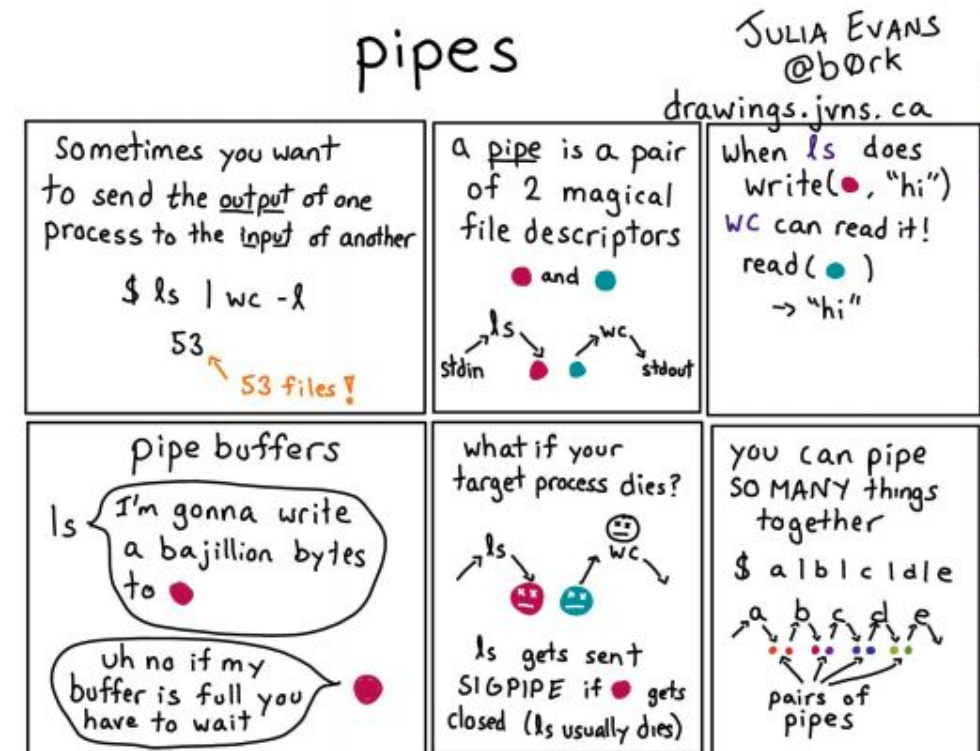 pipes
JULIA EVANS
@bØrk
drawings.jvns.ca
Sometimes you want
to send the output of one
process to the input of another
$ ls | wc -l
53
53 files!
a pipe is a pair
of 2 magical
file descriptors
and
ls
wc
stdin
stdout
when ls does
write( , "hi")
wc can read it!
read( )
→ "hi"
pipe buffers
ls
I'm gonna write
a bajillion bytes
to
uh no if my
buffer is full you
have to wait
what if your
target process dies?
ls
wc
ls gets sent
SIGPIPE if gets
closed (ls usually dies)
you can pipe
SO MANY things
together
$ a|b|c|d|e
a b c d e
pairs of
pipes